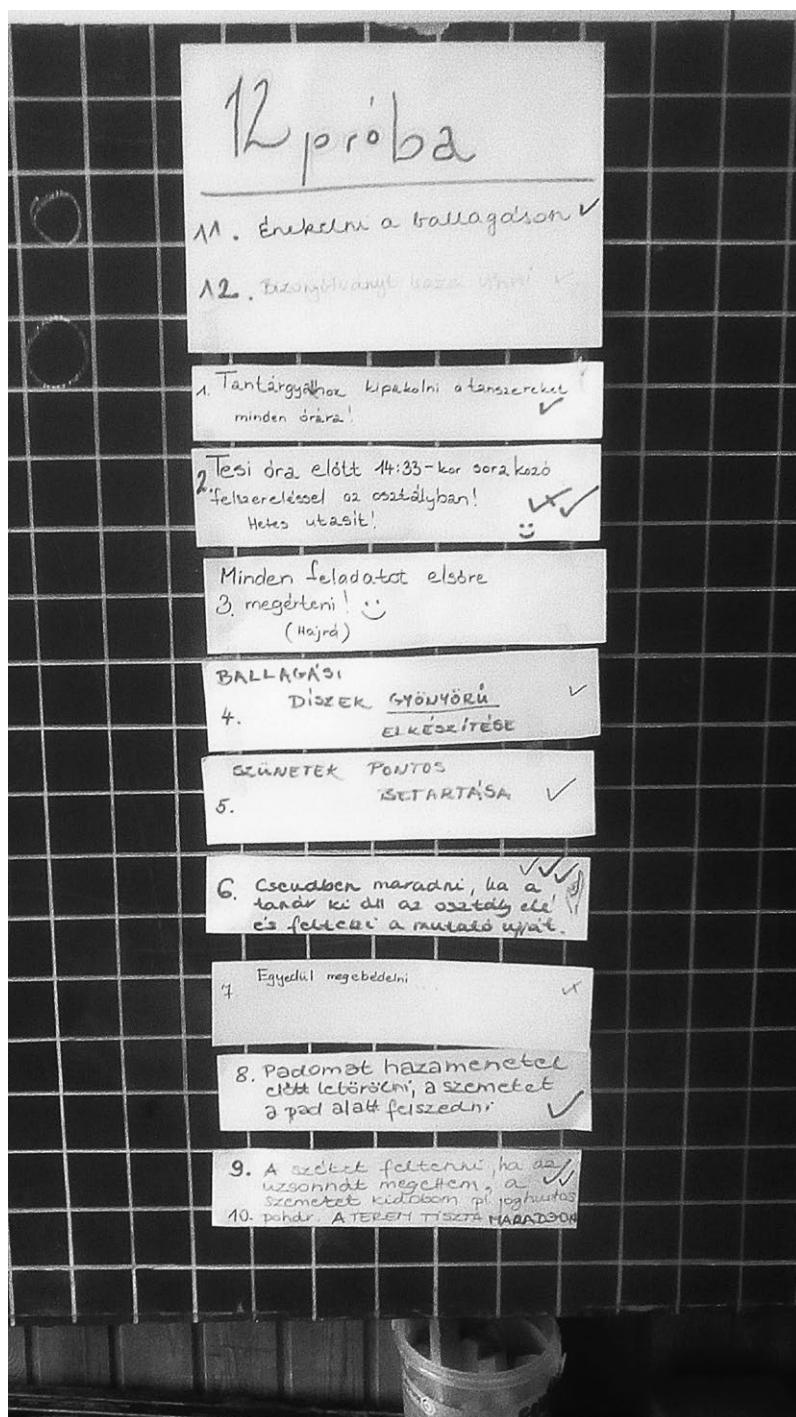 12 próba
11. Énekelni a ballagáson ✓
12. Bizonyítványt haza vinni ✓
1. Tantárgyakhoz kipakolni a tanszereket
minden órára! ✓
2. Tesi óra előtt 14:33-kor sorakozó
felszereléssel az osztályban!
Hetes utasít!
Minden feladatot elsőre
3. megérteni!
(Hajrá)
BALLAGÁSI
4. DÍSZEK GYÖNYÖRŰ
ELKÉSZÍTÉSE
SZÜNETEK PONTOS
5. BETARTÁSA
6. Csendben maradni, ha a
tanár ki áll az osztály elé
és felteszi a mutató ujját.
7 Egyedül megebédelni
8. Padomat hazamenetel
előtt letörölni, a szemetet
a pad alatt felszedni
9. A széket feltenni, ha az
uzsonnát megettem, a
szemetet kidobom pl. joghurtos
10. pohár. A TEREM TISZTA MARADJON